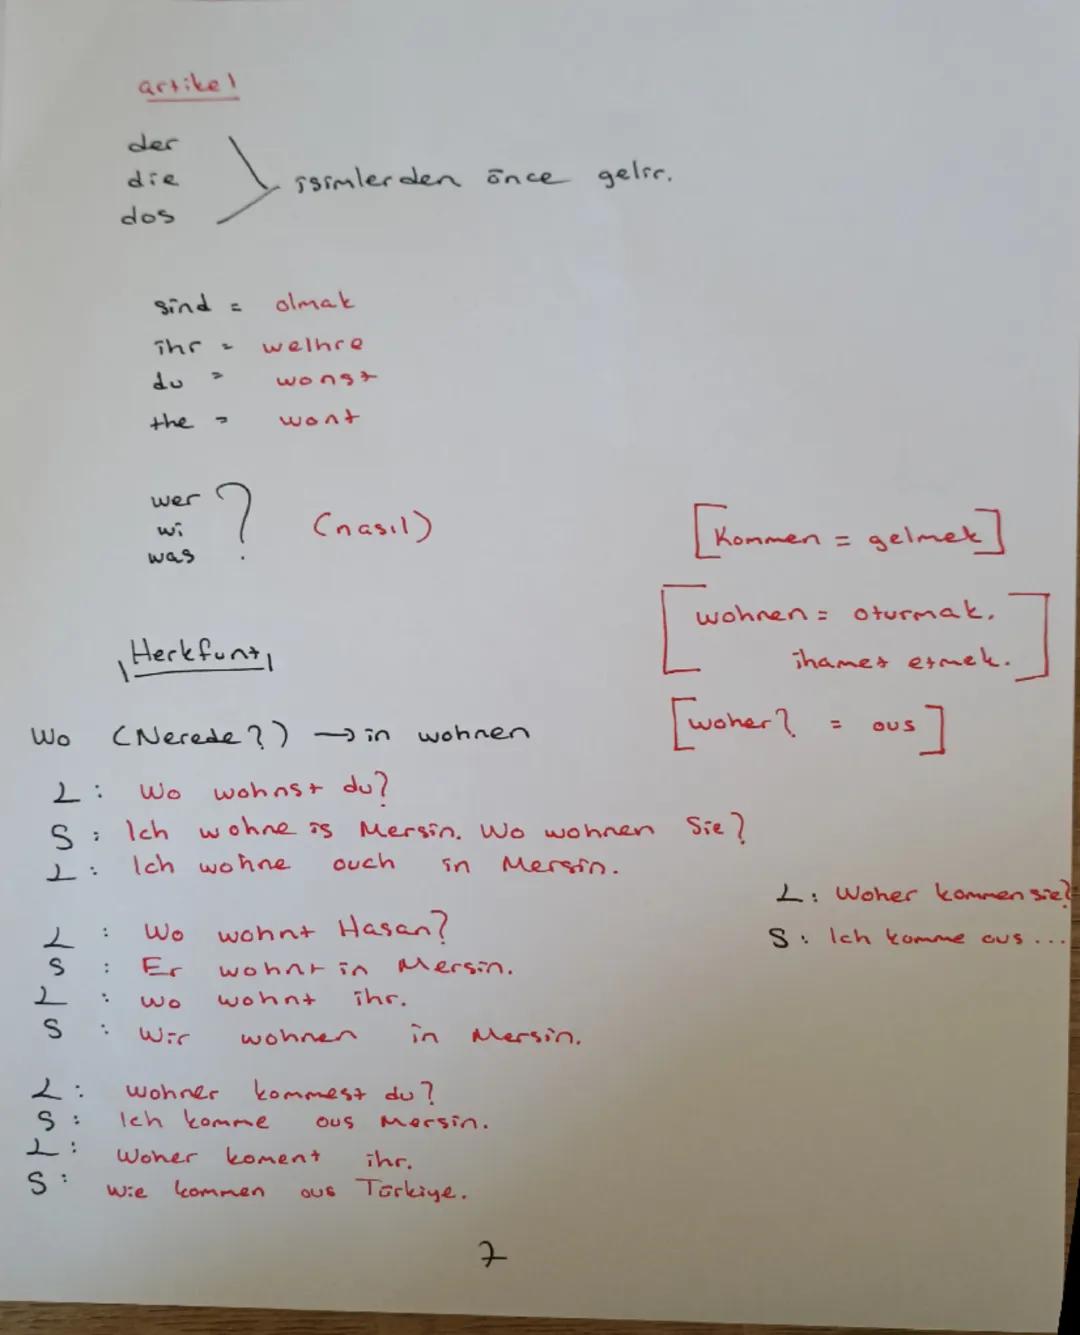 artikel
der
die
das
isimlerden önce gelir.
sind = olmak
ihr = welhre
du = wonst
the = wont
wer
wi ?
was
(nasıl)
[Kommen = gelmek]
[wohnen = oturmak.
ihamet etmek.]
[woher? = aus]
Herkfunt
Wo (Nerede?) → in wohnen
L: Wo wohnst du?
S: Ich wohne is Mersin. Wo wohnen Sie?
L: Ich wohne auch in Mersin.
L: Woher kommen sie?
S: Ich komme aus ...
L: Wo wohnt Hasan?
S: Er wohnt in Mersin.
L: wo wohnt ihr.
S: Wir wohnen in Mersin.
L: wohner kommest du?
S: Ich komme aus Mersin.
L: Woher koment ihr.
S: Wie kommen aus Türkiye.
7